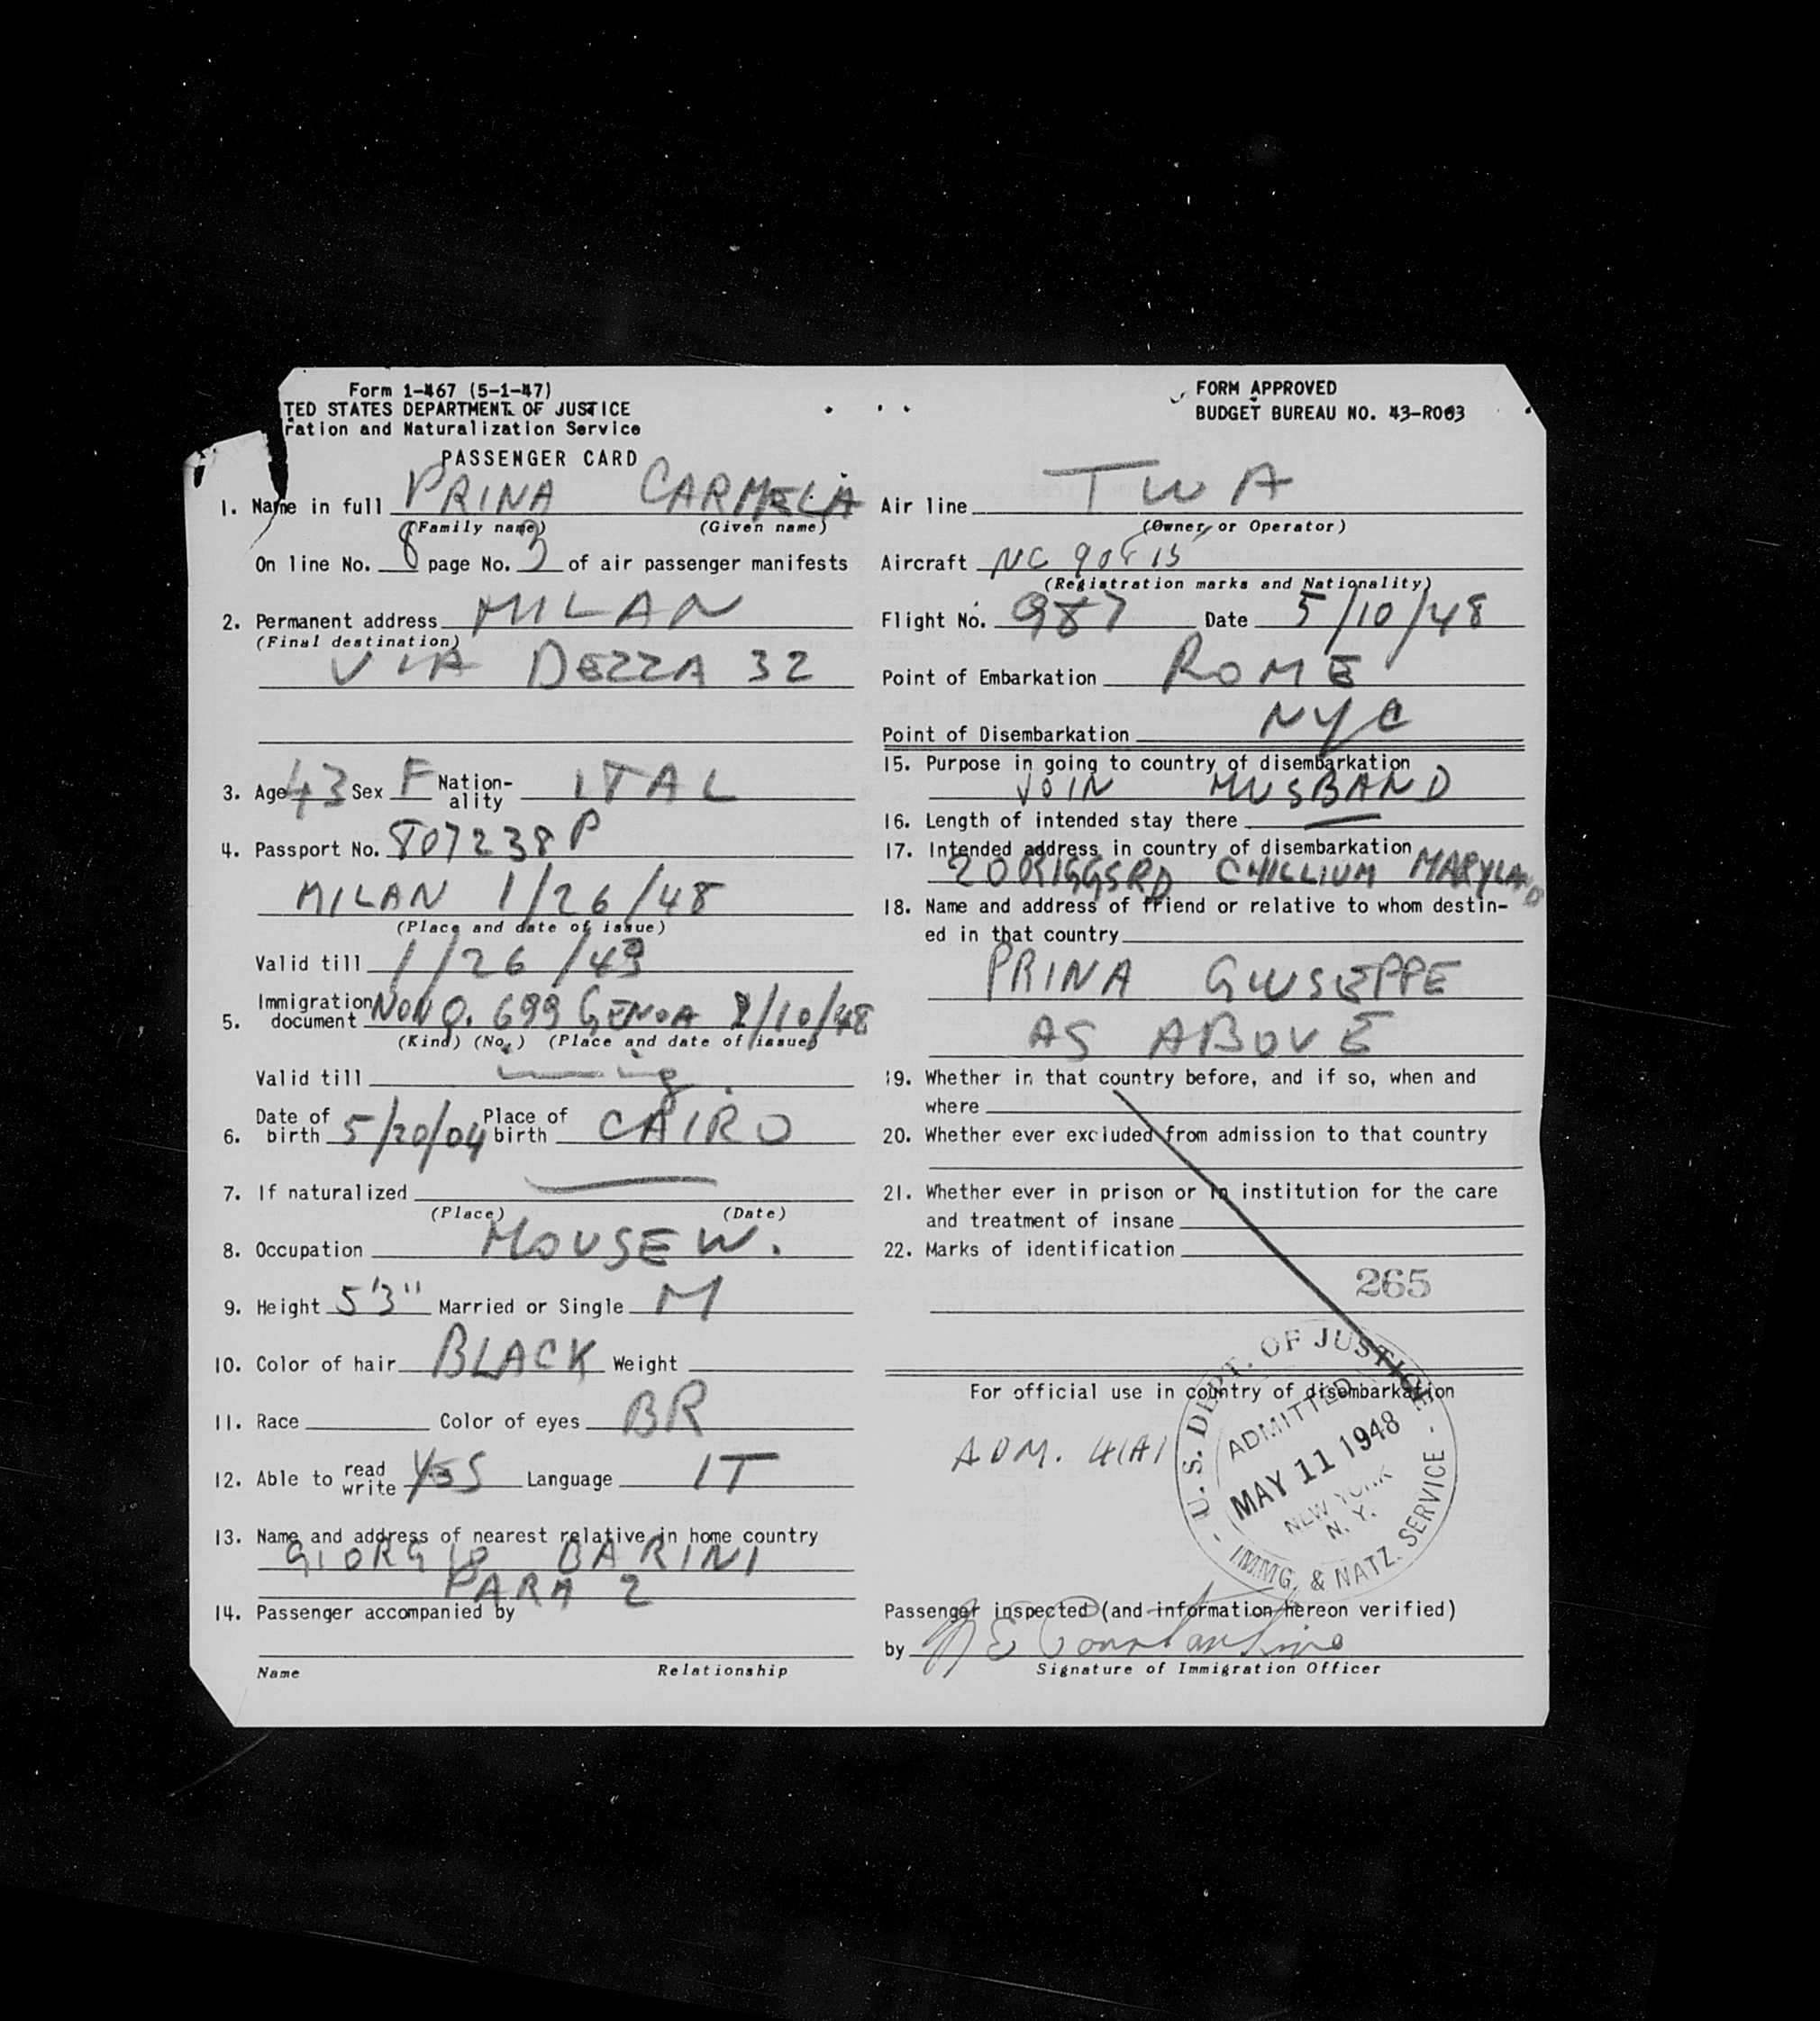 Form 1-467 (5-1-47)
TED STATES DEPARTMENT OF JUSTICE
ration and Naturalization Service
PASSENGER CARD
FORM APPROVED
BUDGET BUREAU NO. 43-R063
1. Name in full PRINA CARMELA
(Family name) (Given name)
On line No. 8 page No. 3 of air passenger manifests
2. Permanent address MILAN
(Final destination)
VIA DEZZA 32
3. Age 43 Sex F Nation-ality ITAL
4. Passport No. 807238 P
MILAN 1/26/48
(Place and date of issue)
Valid till 1/26/49
5. Immigration document NON Q. 699 GENOA 2/10/48
(Kind) (No.) (Place and date of issue)
Valid till
6. Date of birth 5/20/04 Place of birth CAIRO
7. If naturalized
(Place) (Date)
8. Occupation HOUSE W.
9. Height 5'3" Married or Single M
10. Color of hair BLACK Weight
11. Race Color of eyes BR
12. Able to read write YES Language IT
13. Name and address of nearest relative in home country
GIORGIO BARINI
PARA 2
14. Passenger accompanied by
Name Relationship
Air line TWA
(Owner or Operator)
Aircraft NC
(Registration marks and Nationality)
Flight No. 987 Date 5/10/48
Point of Embarkation ROME
Point of Disembarkation NYC
15. Purpose in going to country of disembarkation
JOIN HUSBAND
16. Length of intended stay there —
17. Intended address in country of disembarkation
20 RIGGS RD CHILLIUM MARYLAND
18. Name and address of friend or relative to whom destin-
ed in that country
PRINA GIUSEPPE
AS ABOVE
19. Whether in that country before, and if so, when and
where
20. Whether ever excluded from admission to that country
21. Whether ever in prison or in institution for the care
and treatment of insane
22. Marks of identification
265
For official use in country of disembarkation
ADM. 4(A)
U.S. DEPT. OF JUSTICE
ADMITTED
MAY 11 1948
NEW YORK
N. Y.
IMMG. & NATZ. SERVICE
Passenger inspected (and information hereon verified)
by
Signature of Immigration Officer